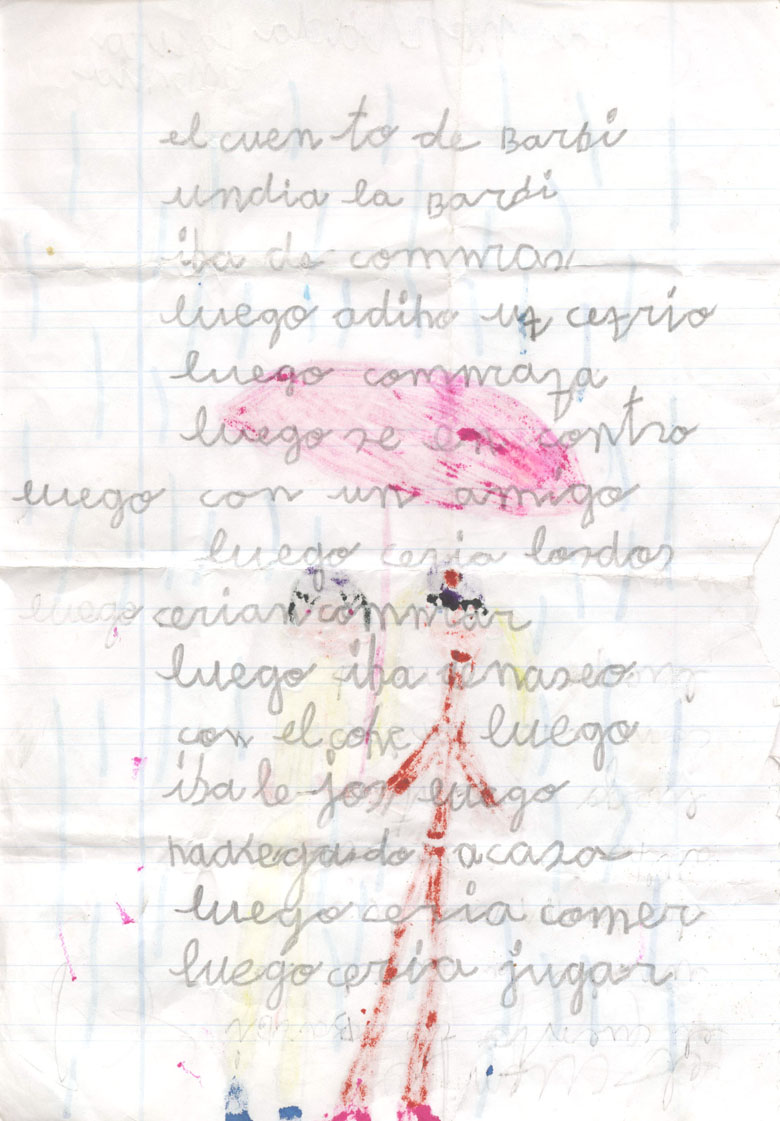 el cuento de Barbi
undia la Bardi
iba de commras
luego
luego commraza
luego se en contro
luego con un amigo
luego ceria losdos
luego cerian commrar
luego iba
con el cohe luego
iba le jos luego
acasa
luego ceria comer
luego ceria jugar